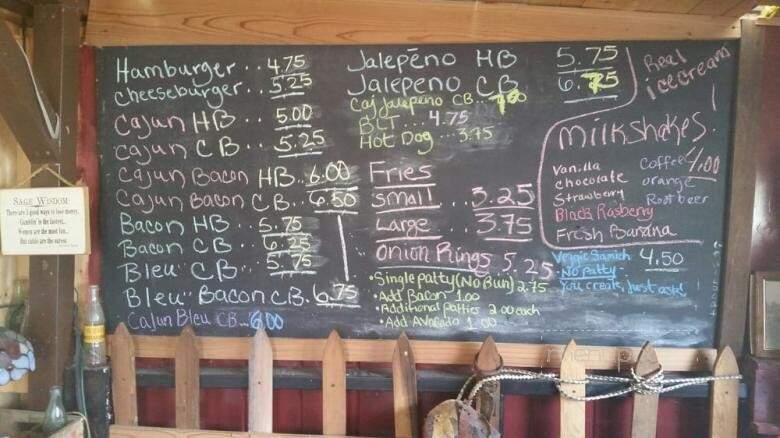 Hamburger.. 4.75
cheeseburger.. 5.25
Cajun HB.. 5.00
cajun CB.. 5.25
Cajun Bacon HB.. 6.00
Cajun Bacon CB.. 6.50
Bacon HB.. 5.75
Bacon CB.. 6.25
Bleu CB.. 5.75
Bleu Bacon CB. 6.75
Cajun Bleu CB.. 6.00
Jalepēno HB 5.75
Jalepeno CB
Caj Jalepeno CB...
BLT. 4.75
Hot Dog ... 3.75
Fries
Small .. 3.25
Large .. 3.75
Onion Rings 5.25
•Single patty (No Bun) 2.75
•Add Bacon 1.00
•Additional Patties 2.00 each
•Add Avacado 1.00
Real
icecream!
Milkshakes.
4.00
Vanilla
chocolate
Strawberry
Black Rasberry
Fresh Banana
Coffee
orange
Root beer
Veggie Samich 4.50
-No patty-
You create, Just ask!
SAGE WISDOM
There are 3 good ways to lose money.
Gamblin' is the fastest...
Women are the most fun...
But cattle are the surest
menupix